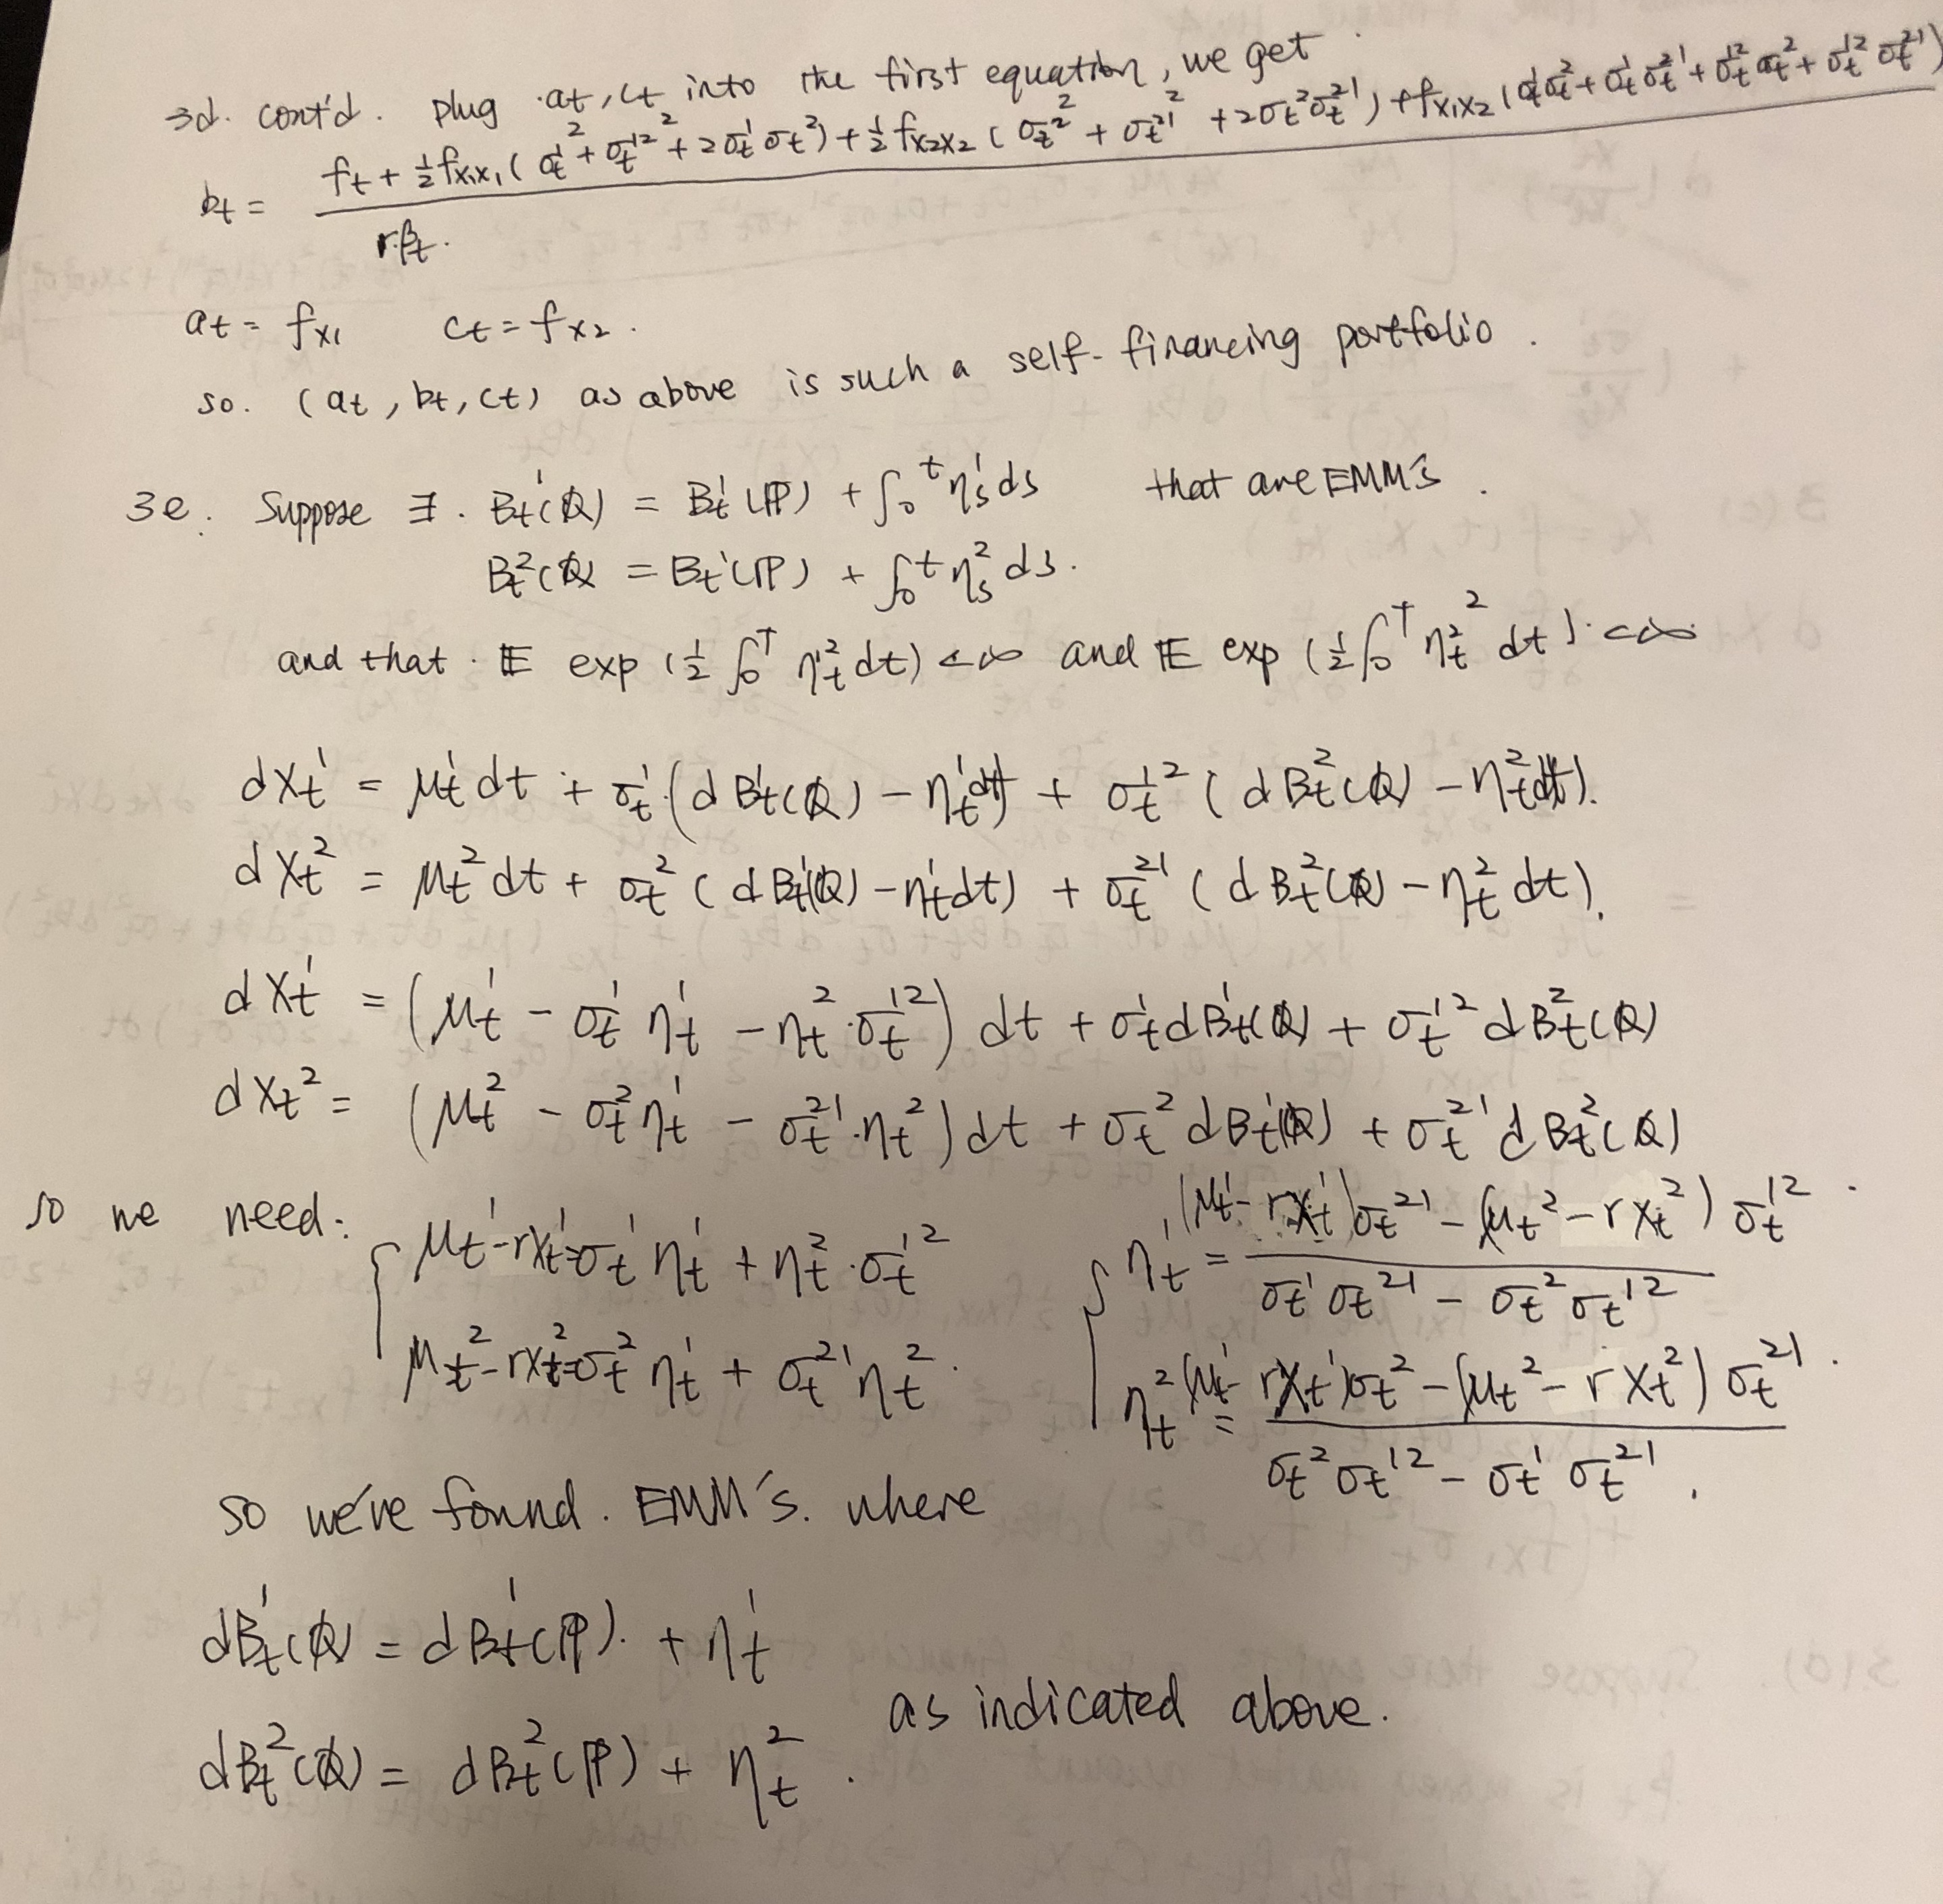 3d. cont'd. plug at, ct into the first equation, we get
bt = \frac{f_t + \frac{1}{2} f_{x_1x_1} (σ_t^{1 2} + σ_t^{12 2} + 2σ_t^1 σ_t^2) + \frac{1}{2} f_{x_2x_2} (σ_t^{2 2} + σ_t^{21 2} + 2σ_t^2 σ_t^{21}) + f_{x_1x_2} (σ_t^1 σ_t^2 + σ_t^1 σ_t^{21} + σ_t^{12} σ_t^2 + σ_t^{12} σ_t^{21})}{r β_t}.
a_t = f_{x_1} c_t = f_{x_2}.
so. (a_t, b_t, c_t) as above is such a self-financing portfolio.
3e. Suppose ∃. B_t^1(Q) = B_t^1(P) + ∫_0^t η_s^1 ds that are EMM's.
B_t^2(Q) = B_t^1(P) + ∫_0^t η_s^2 ds.
and that. E exp(\frac{1}{2} ∫_0^T η_t^{1 2} dt) < ∞ and E exp(\frac{1}{2} ∫_0^T η_t^{2 2} dt) < ∞
dX_t^1 = μ_t^1 dt + σ_t^1 (dB_t^1(Q) - η_t^1 dt) + σ_t^{12} (dB_t^2(Q) - η_t^2 dt).
dX_t^2 = μ_t^2 dt + σ_t^2 (dB_t^1(Q) - η_t^1 dt) + σ_t^{21} (dB_t^2(Q) - η_t^2 dt).
dX_t^1 = (μ_t^1 - σ_t^1 η_t^1 - η_t^2 · σ_t^{12}) dt + σ_t^1 dB_t^1(Q) + σ_t^{12} dB_t^2(Q)
dX_t^2 = (μ_t^2 - σ_t^2 η_t^1 - σ_t^{21} · η_t^2) dt + σ_t^2 dB_t^1(Q) + σ_t^{21} dB_t^2(Q)
so we need: { μ_t^1 - rX_t^1 = σ_t^1 η_t^1 + η_t^2 · σ_t^{12} { η_t^1 = \frac{(μ_t^1 - rX_t^1) σ_t^{21} - (μ_t^2 - rX_t^2) σ_t^{12}}{σ_t^1 σ_t^{21} - σ_t^2 σ_t^{12}}.
μ_t^2 - rX_t^2 = σ_t^2 η_t^1 + σ_t^{21} η_t^2. η_t^2 = \frac{(μ_t^1 - rX_t^1) σ_t^2 - (μ_t^2 - rX_t^2) σ_t^{21}}{σ_t^2 σ_t^{12} - σ_t^1 σ_t^{21}}.
so we've found. EMM's. where
dB_t^1(Q) = dB_t^1(P). + η_t^1
dB_t^2(Q) = dB_t^2(P) + η_t^2. as indicated above.